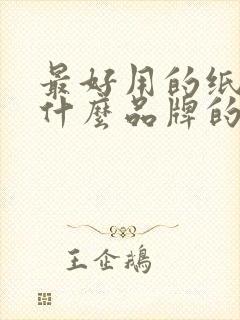 最好用的纸
什麼品牌的
王企鵝